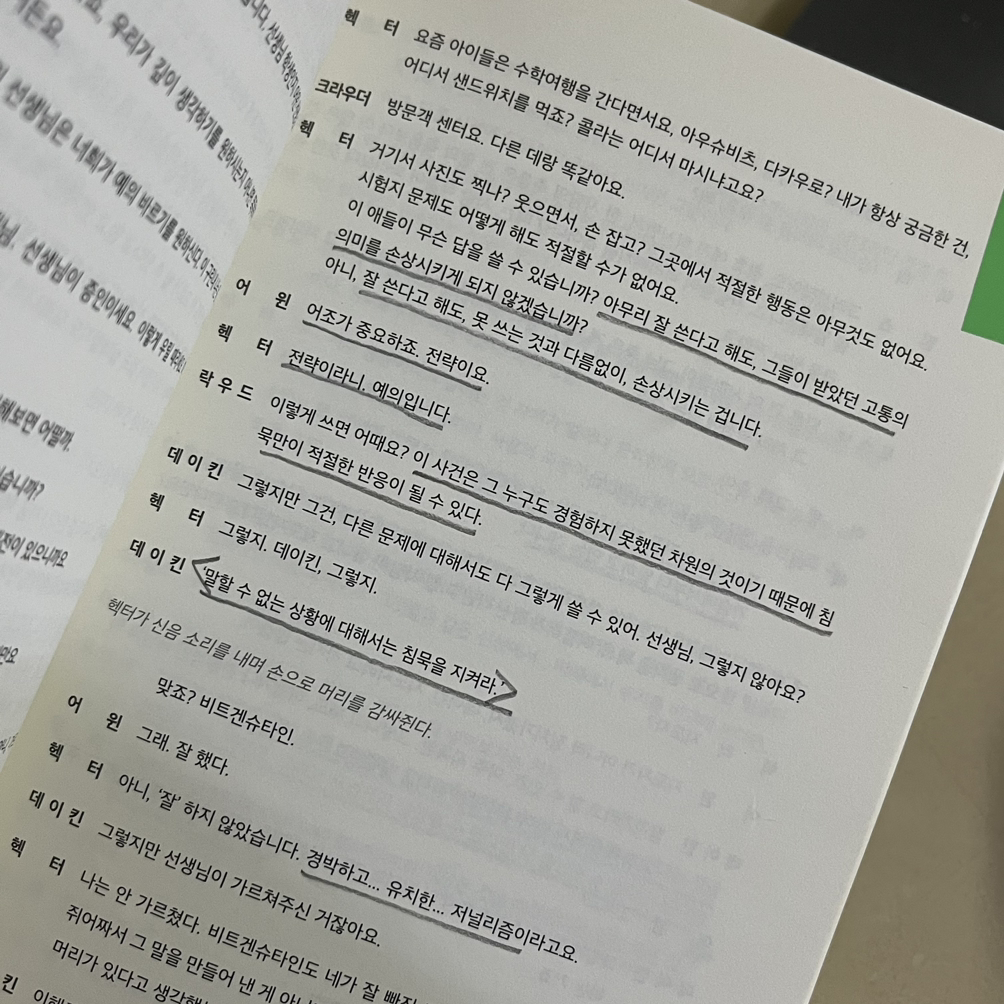 니다, 선생님
요, 우리가 깊이 생각하기를 원하시는지
거든요.
선생님은 너희가 예의 바르기를 원하신다.
님. 선생님이 증인이세요. 이렇게 우릴
해보면 어떨까.
습니까?
전이 있으니까요
만요
헥 터 요즘 아이들은 수학여행을 간다면서요, 아우슈비츠, 다카우로? 내가 항상 궁금한 건,
어디서 샌드위치를 먹죠? 콜라는 어디서 마시냐고요?
크라우더 방문객 센터요. 다른 데랑 똑같아요.
헥 터 거기서 사진도 찍나? 웃으면서, 손 잡고? 그곳에서 적절한 행동은 아무것도 없어요.
시험지 문제도 어떻게 해도 적절할 수가 없어요.
이 애들이 무슨 답을 쓸 수 있습니까? 아무리 잘 쓴다고 해도, 그들이 받았던 고통의
의미를 손상시키게 되지 않겠습니까?
아니, 잘 쓴다고 해도, 못 쓰는 것과 다름없이, 손상시키는 겁니다.
어 윈 어조가 중요하죠. 전략이요.
헥 터 전략이라니. 예의입니다.
락우드 이렇게 쓰면 어때요? 이 사건은 그 누구도 경험하지 못했던 차원의 것이기 때문에 침
묵만이 적절한 반응이 될 수 있다.
데이킨 그렇지만 그건, 다른 문제에 대해서도 다 그렇게 쓸 수 있어. 선생님, 그렇지 않아요?
헥 터 그렇지. 데이킨, 그렇지.
데이킨 ‘말할 수 없는 상황에 대해서는 침묵을 지켜라.’
헥터가 신음 소리를 내며 손으로 머리를 감싸쥔다.
맞죠? 비트겐슈타인.
어 윈 그래. 잘 했다.
헥 터 아니, ‘잘’ 하지 않았습니다. 경박하고... 유치한... 저널리즘이라고요.
데이킨 그렇지만 선생님이 가르쳐주신 거잖아요.
헥 터 나는 안 가르쳤다. 비트겐슈타인도 네가 잘 빠진
쥐어짜서 그 말을 만들어 낸 게 아니
머리가 있다고 생각했
킨